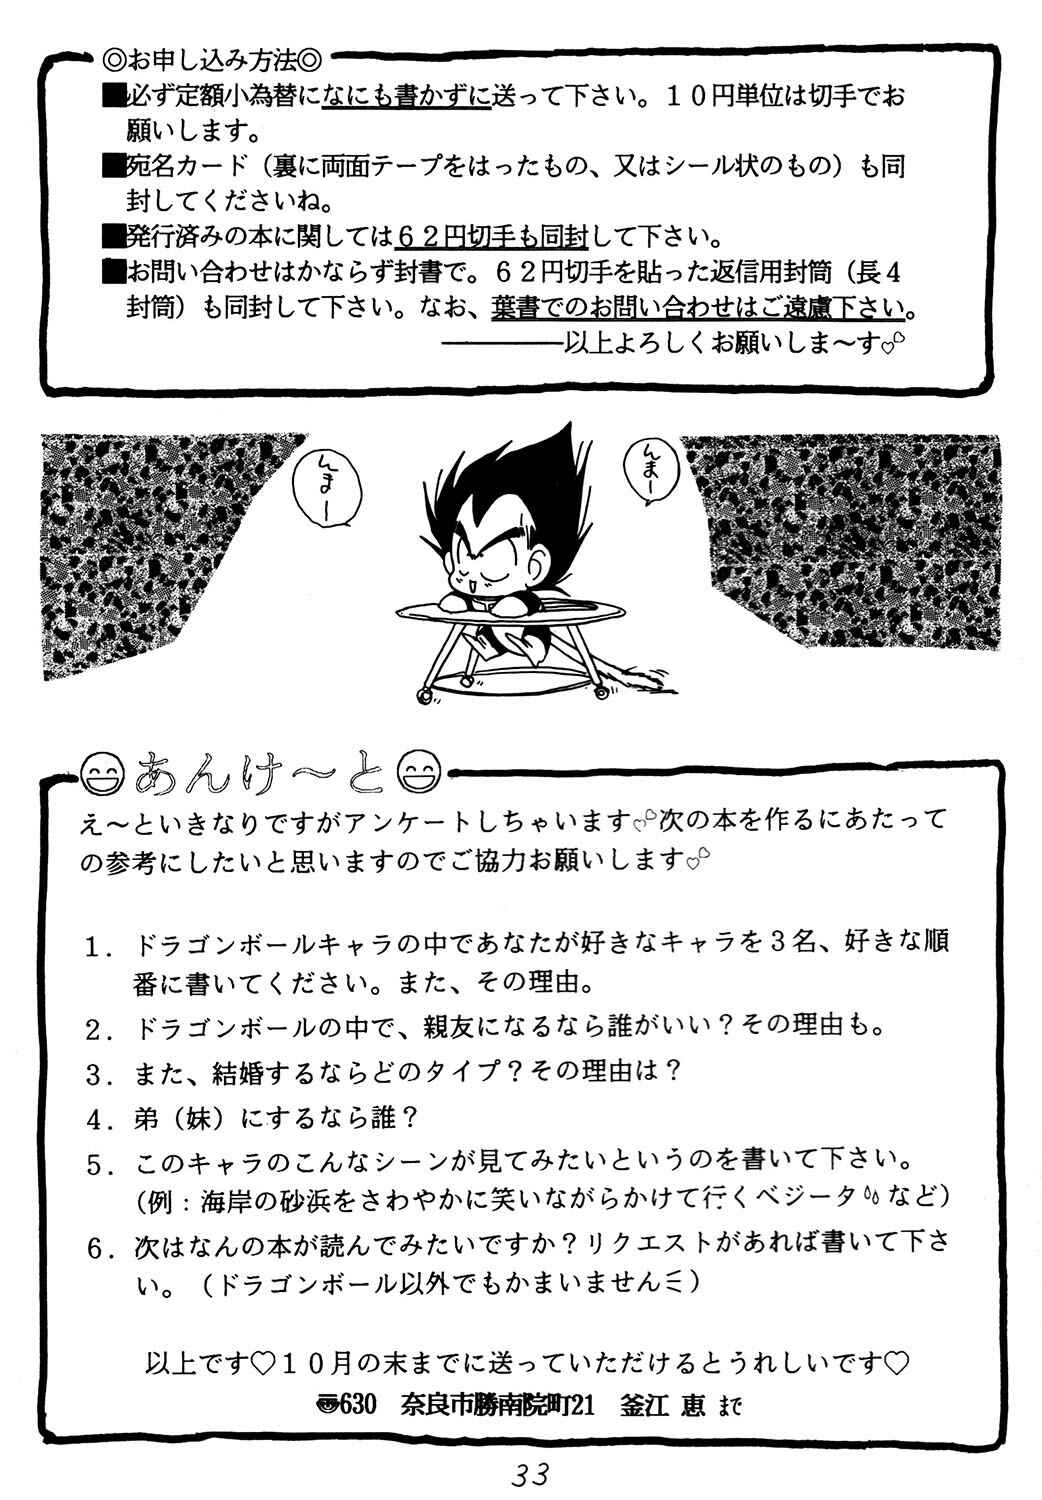 ◎お申し込み方法◎
■必ず定額小為替になにも書かずに送って下さい。１０円単位は切手でお
願いします。
■宛名カード（裏に両面テープをはったもの、又はシール状のもの）も同
封してくださいね。
■発行済みの本に関しては６２円切手も同封して下さい。
■お問い合わせはかならず封書で。６２円切手を貼った返信用封筒（長４
封筒）も同封して下さい。なお、葉書でのお問い合わせはご遠慮下さい。
―――――以上よろしくお願いしま〜す♡♡
んまー
んまー
あんけ〜と
え〜といきなりですがアンケートしちゃいます♡♡次の本を作るにあたって
の参考にしたいと思いますのでご協力お願いします♡♡
１．ドラゴンボールキャラの中であなたが好きなキャラを３名、好きな順
番に書いてください。また、その理由。
２．ドラゴンボールの中で、親友になるなら誰がいい？その理由も。
３．また、結婚するならどのタイプ？その理由は？
４．弟（妹）にするなら誰？
５．このキャラのこんなシーンが見てみたいというのを書いて下さい。
（例：海岸の砂浜をさわやかに笑いながらかけて行くベジータなど）
６．次はなんの本が読んでみたいですか？リクエストがあれば書いて下さ
い。（ドラゴンボール以外でもかまいません）
以上です♡１０月の末までに送っていただけるとうれしいです♡
〠630　奈良市勝南院町21　釜江 恵 まで
33